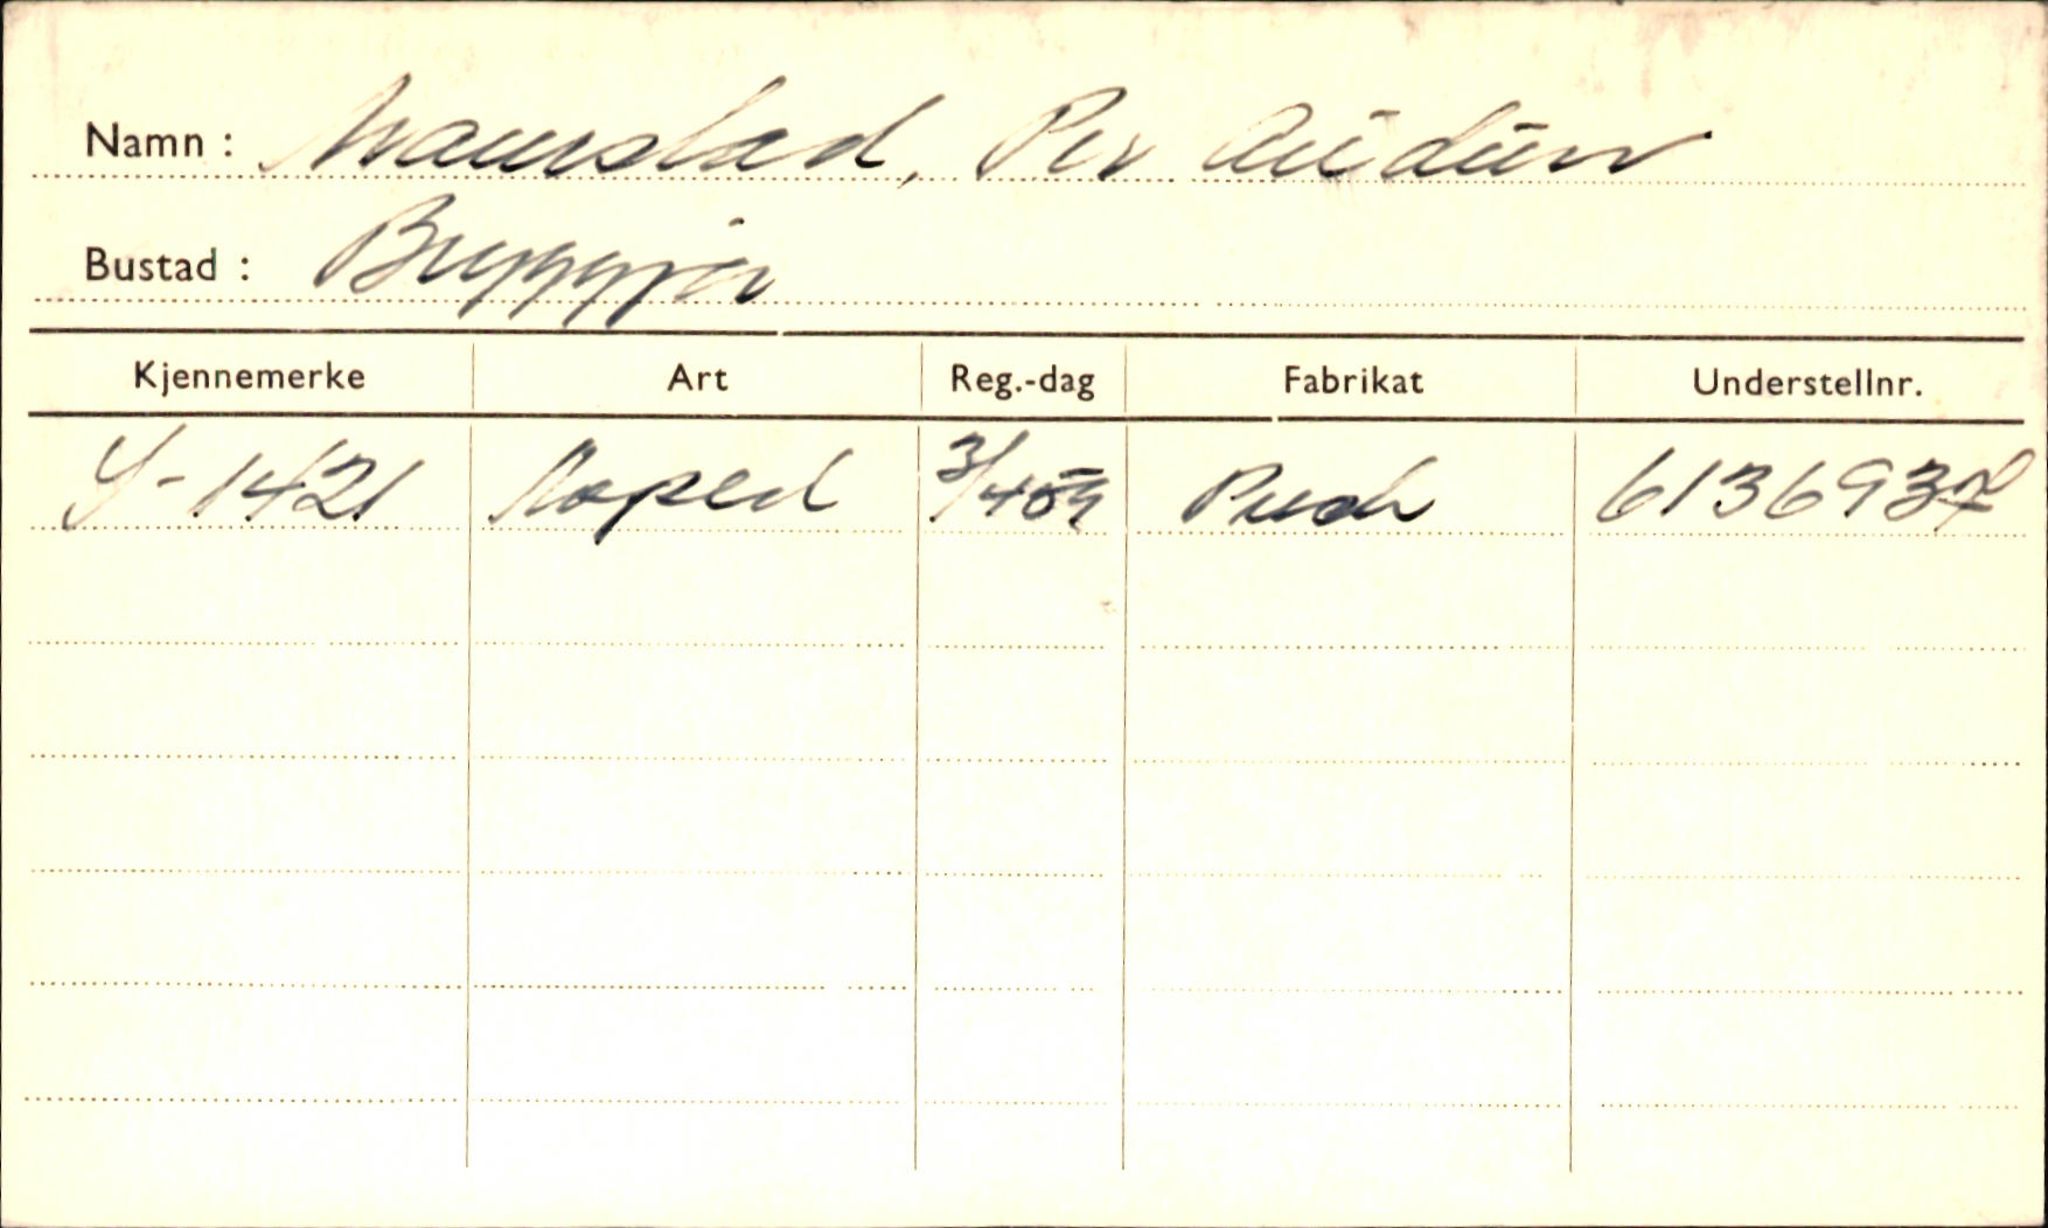 Namn : Maurstad, Per Audun
Bustad : Bryggja
Kjennemerke Art Reg.-dag Fabrikat Understellnr.
Y-1421 Moped 3/4 59 Puch